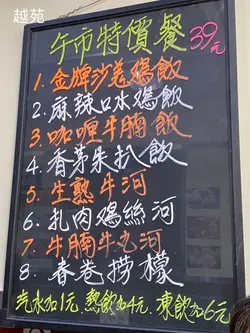 越苑
午市特價餐 39元
1. 金牌沙羗鷄飯
2. 麻辣口水鷄飯
3. 咖喱牛腩飯
4. 香茅朱扒飯
5. 生熟牛河
6. 扎肉鷄絲河
7. 牛腩牛丸河
8. 春卷撈檬
汽水加1元, 熱飲加4元, 凍飲加6元